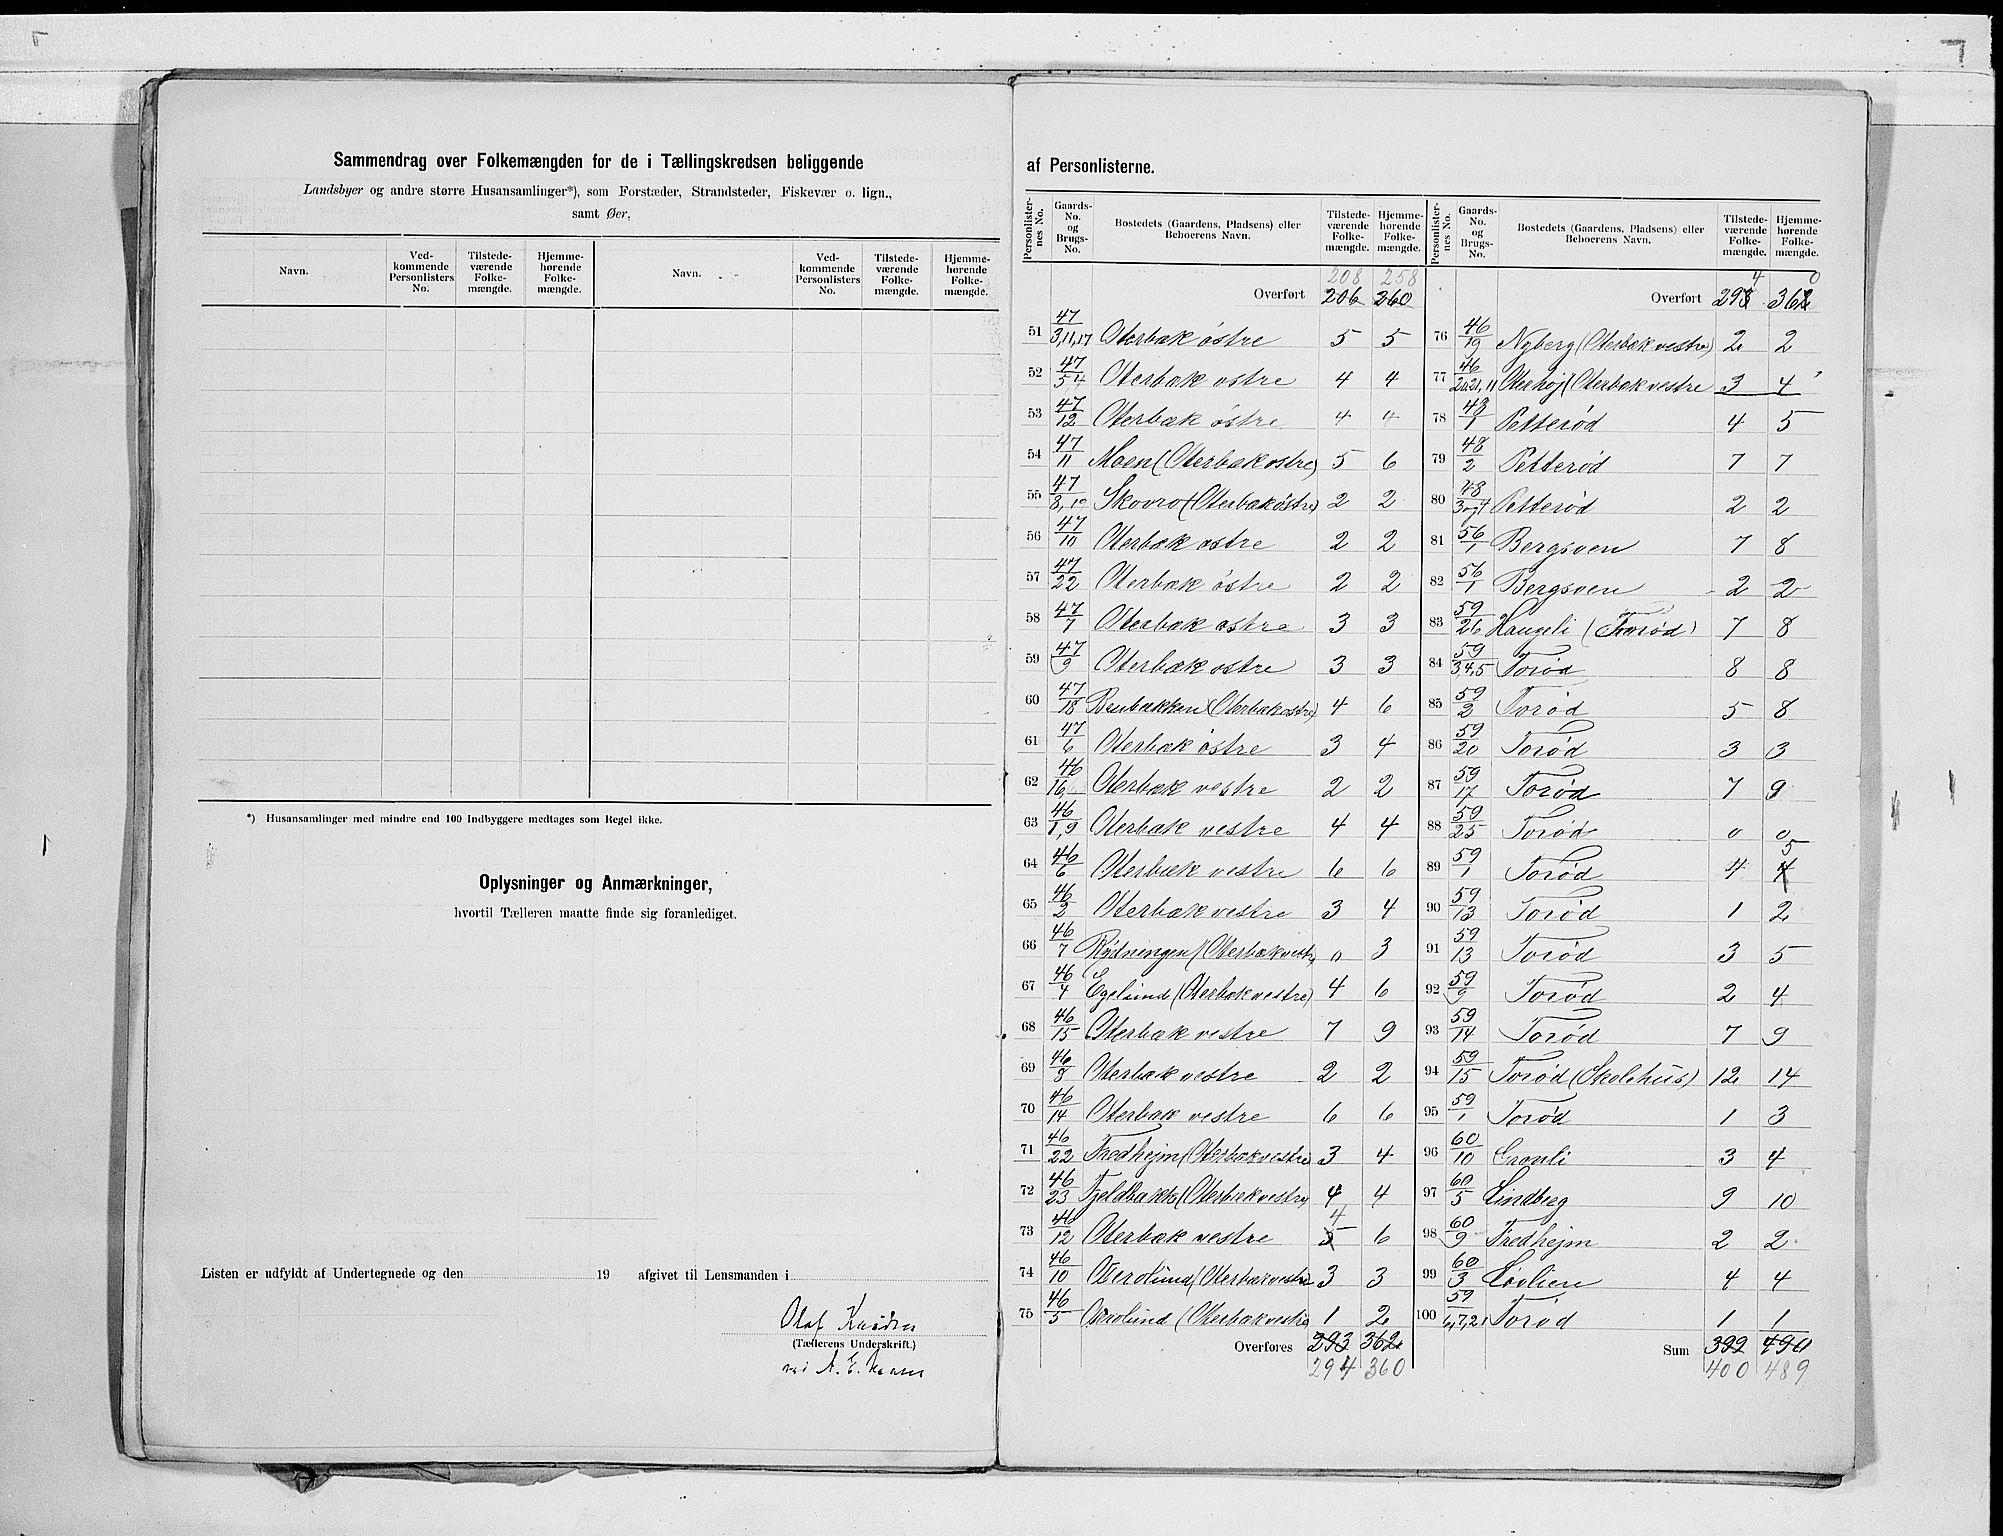 Sammendrag over Folkemængden for de i Tællingskredsen beliggende
Landsbyer og andre større Husansamlinger*), som Forstæder, Strandsteder, Fiskevær o. lign.,
samt Øer,
Navn. Ved-kommende Personlisters No. Tilstede-værende Folke-mængde. Hjemme-hørende Folke-mængde. Navn. Ved-kommende Personlisters No. Tilstede-værende Folke-mængde. Hjemme-hørende Folke-mængde.
*) Husansamlinger med mindre end 100 Indbyggere medtages som Regel ikke.
Oplysninger og Anmærkninger,
hvortil Tælleren maatte finde sig foranlediget.
Listen er udfyldt af Undertegnede og den 19 afgivet til Lensmanden i
Olaf
(Tællerens Underskrift.)
ved A. E.
af Personlisterne.
Personlister-nes No. Gaards-No. og Brugs-No. Bostedets (Gaardens, Pladsens) eller Beboerens Navn. Tilstede-værende Folke-mængde. Hjemme-hørende Folke-mængde.
208 258
Overført 206 260
51 47/3,11,17 Oterbæk østre 5 5
52 47/54 Oterbæk østre 4 4
53 47/12 Oterbæk østre 4 4
54 47/11 Moen (Oterbæk østre) 5 6
55 47/8,19 Skovro (Oterbæk østre) 2 2
56 47/10 Oterbæk østre 2 2
57 47/22 Oterbæk østre 2 2
58 47/7 Oterbæk østre 3 3
59 47/9 Oterbæk østre 3 3
60 47/18 (Oterbæk østre) 4 6
61 47/6 Oterbæk østre 3 4
62 46/16 Oterbæk vestre 2 2
63 46/1,9 Oterbæk vestre 4 4
64 46/6 Oterbæk vestre 6 6
65 46/2 Oterbæk vestre 3 4
66 46/7 Rydningen (Oterbæk vestre 0 3
67 46/4 Egelund (Oterbæk vestre) 4 6
68 46/15 Oterbæk vestre 7 9
69 46/3 Oterbæk vestre 2 2
70 46/14 Oterbæk vestre 6 6
71 46/22 Fredhejm (Oterbæk vestre 3 4
72 46/23 Fjeldbakk (Oterbæk vestre) 4 4
73 46/12 Oterbæk vestre 5 4 6
74 46/10 (Oterbæk vestre 3 3
75 46/5 (Oterbæk vestre 1 2
Overføres 293 362
294 360
Personlister-nes No. Gaards-No. og Brugs-No. Bostedets (Gaardens, Pladsens) eller Beboerens Navn. Tilstede-værende Folke-mængde. Hjemme-hørende Folke-mængde.
4 0
Overført 293 362
76 46/19 Nyberg (Oterbæk vestre) 2 2
77 46/20,21,11 Oterhøj (Oterbæk vestre 3 4
78 48/1 Petterød 4 5
79 48/2 Petterød 7 7
80 48/3og4 Petterød 2 2
81 56/1 Bergsven 7 8
82 56/1 Bergsven 2 2
83 59/26 Haugeli (Torød) 7 8
84 59/3,4,5 Torød 8 8
85 59/2 Torød 5 8
86 59/20 Torød 3 3
87 59/17 Torød 7 9
88 59/25 Torød 0 0
89 59/1 Torød 4 4 5
90 59/13 Torød 1 2
91 59/13 Torød 3 5
92 59/9 Torød 2 4
93 59/14 Torød 7 9
94 59/15 Torød (Skolehus) 12 14
95 59/1 Torød 1 3
96 60/10 Gronli 3 4
97 60/5 Lindberg 9 10
98 60/9 Fredhejm 2 2
99 60/3 Løvlien 4 4
100 59/6,7,21 Torød 1 1
Sum 399 490
400 489